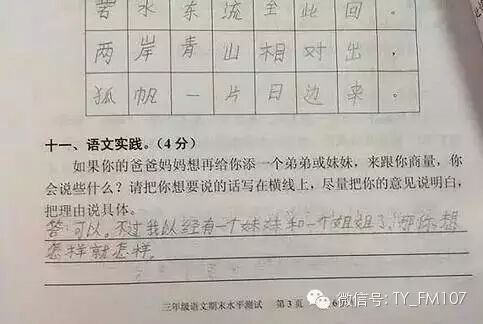 水东流至此回。
两岸青山相对出,
狐帆一片日边来。
十一、语文实践。(4分)
如果你的爸爸妈妈想再给你添一个弟弟或妹妹，来跟你商量，你
会说些什么？请把你想要说的话写在横线上，尽量把你的意见说明白，
把理由说具体。
答:可以。不过我以经有一个妹妹和一个姐姐了,那你想
怎样就怎样。
三年级语文期末水平测试 第3页
微信号: TY_FM107